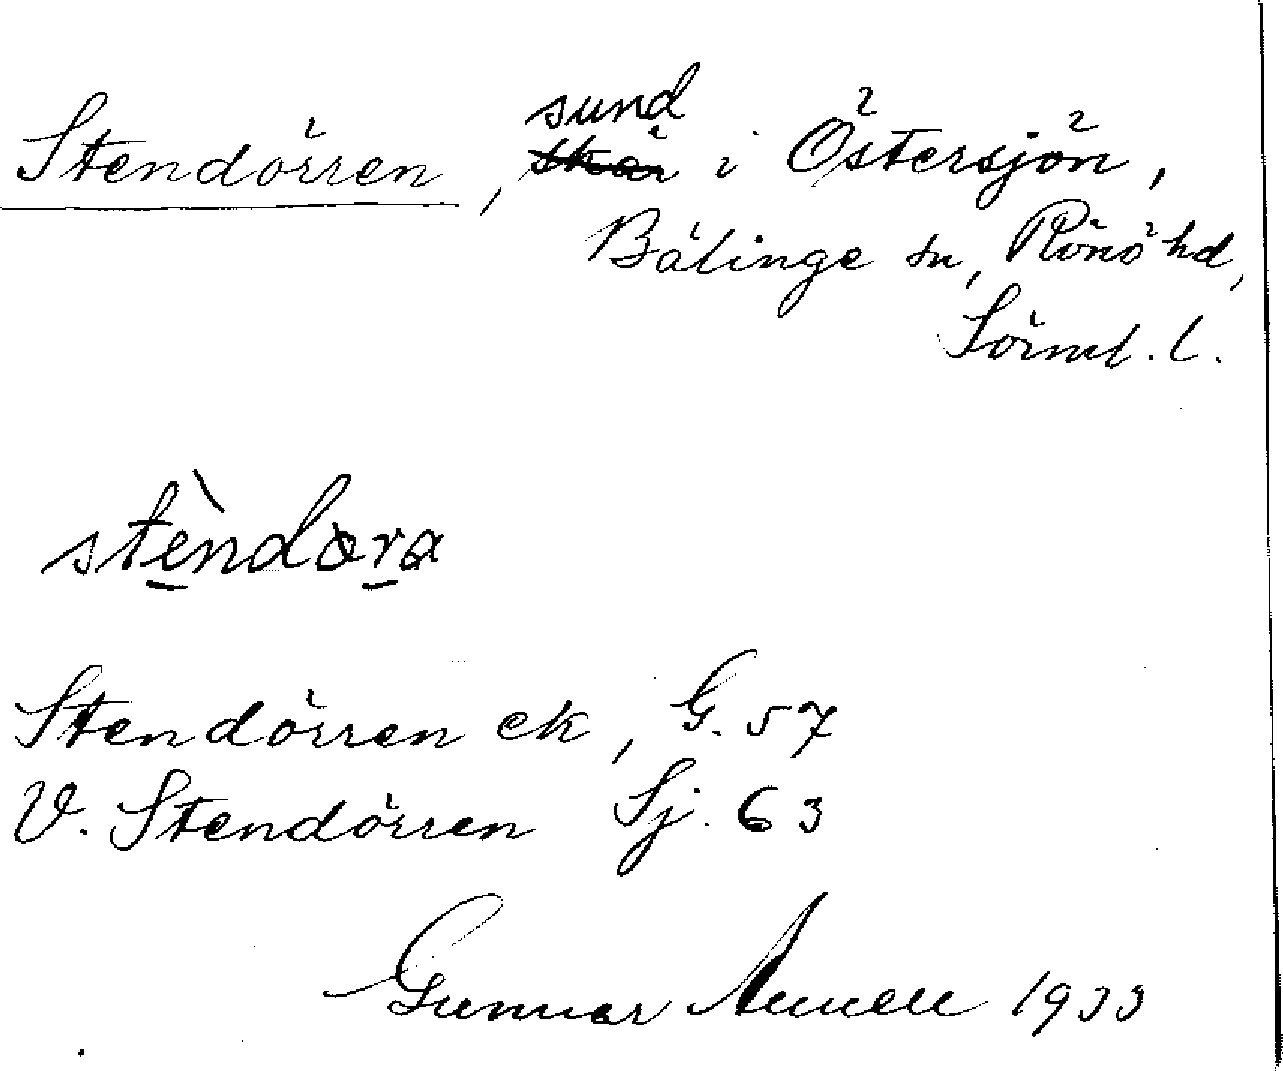 Stendörren, sund skär i Östersjön,
Bälinge sn, Rönö hd,
Sörml. l.
stèndöra
Stendörren ek, G. 57
V. Stendörren Sj. 63
Gunnar Annell 1933